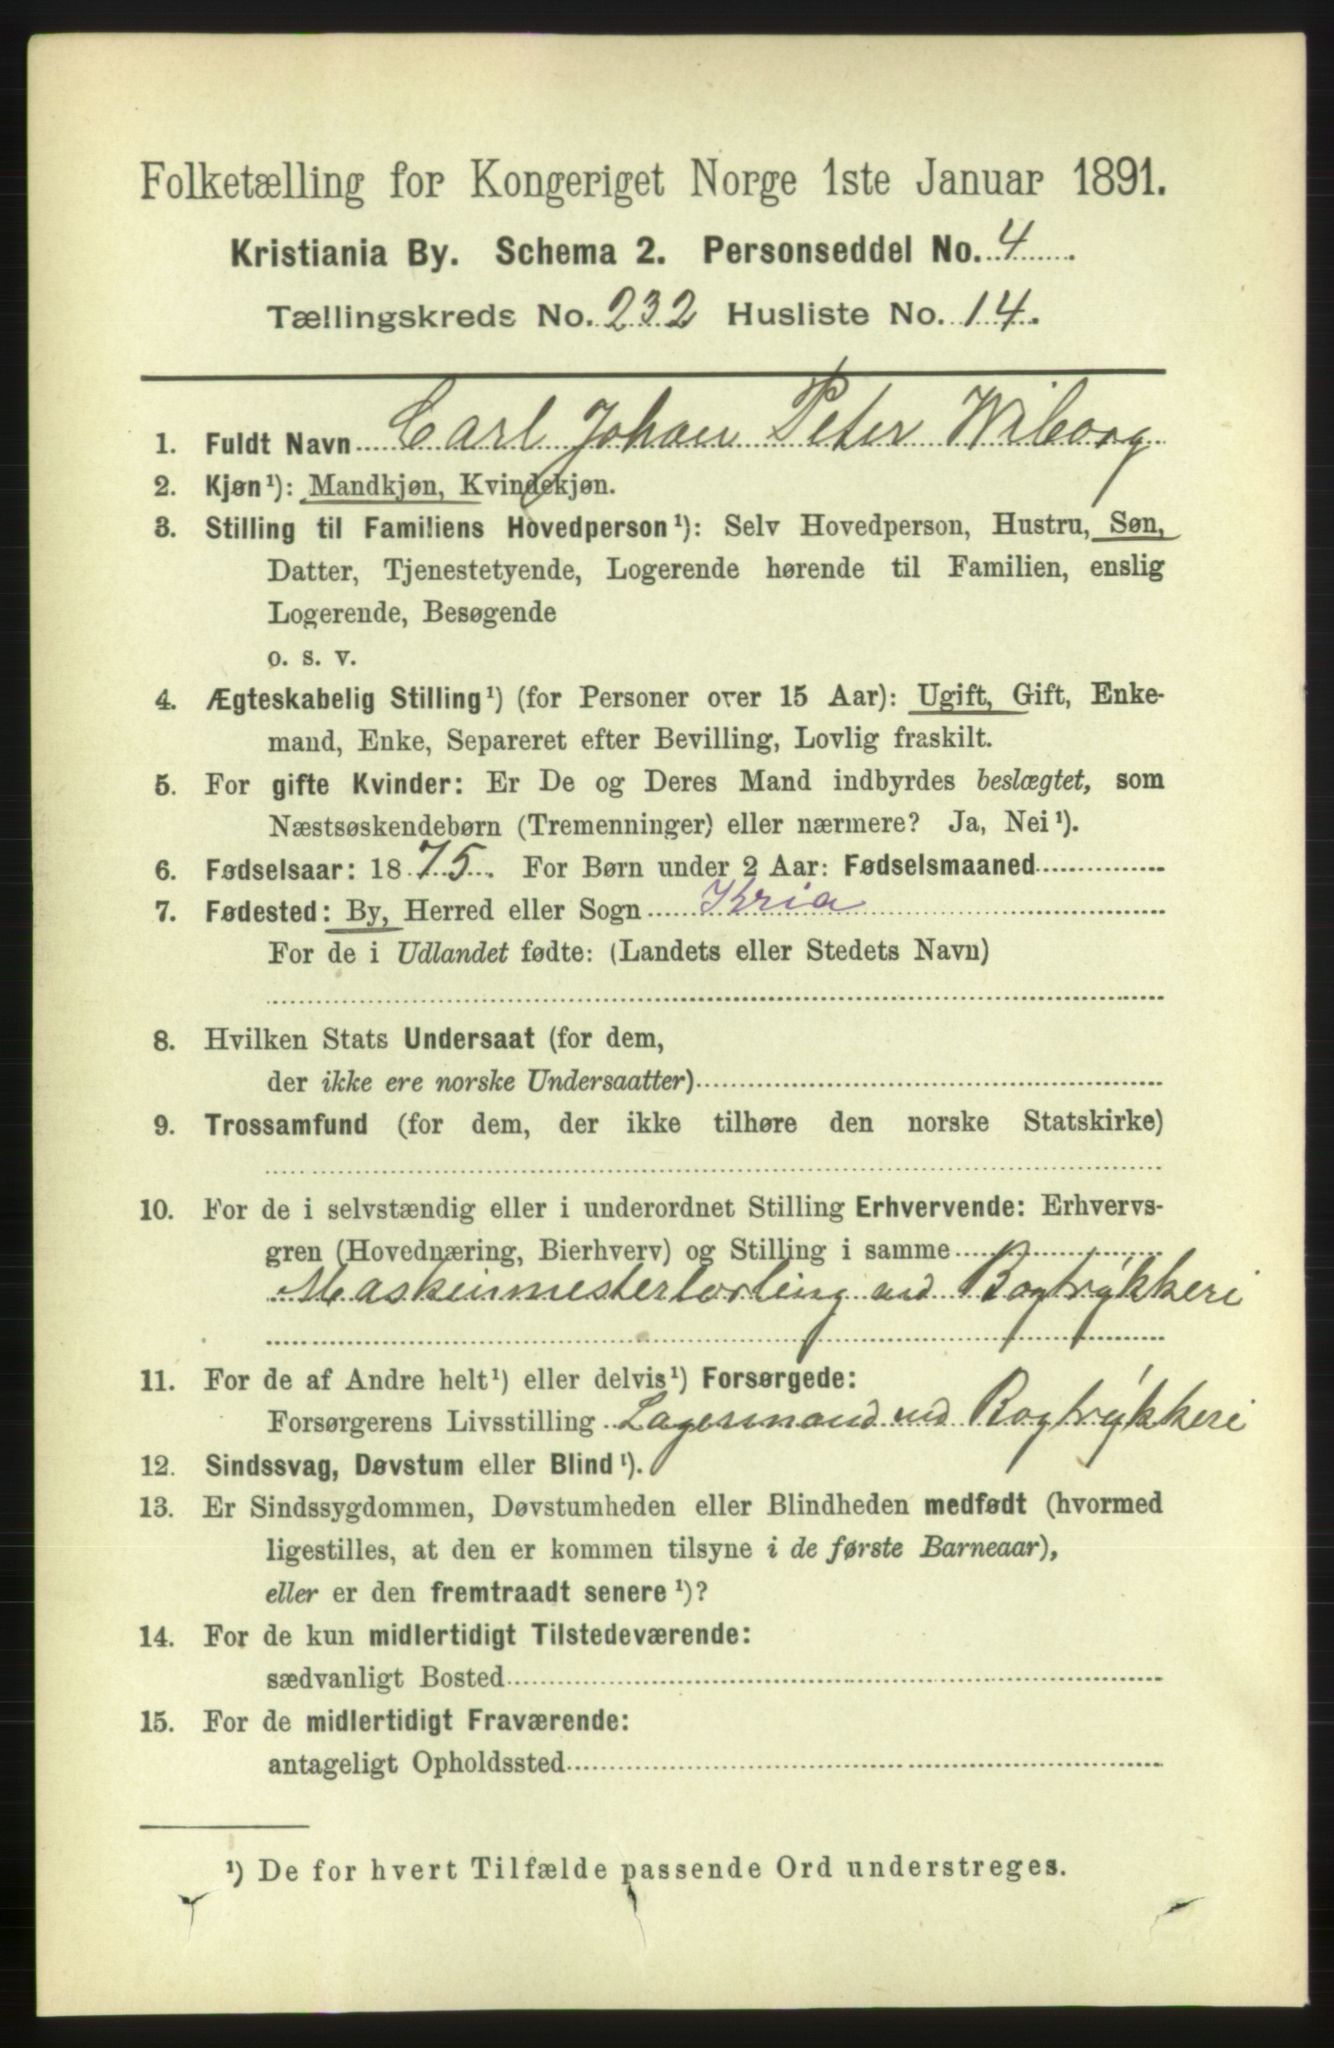 Folketælling for Kongeriget Norge 1ste Januar 1891.
Kristiania By. Schema 2. Personseddel No. 4
Tællingskreds No. 232 Husliste No. 14.
1. Fuldt Navn Carl Johan Peter Wiborg
2. Kjøn¹): Mandkjøn, Kvindekjøn.
3. Stilling til Familiens Hovedperson¹): Selv Hovedperson, Hustru, Søn,
Datter, Tjenestetyende, Logerende hørende til Familien, enslig
Logerende, Besøgende
o. s. v.
4. Ægteskabelig Stilling¹) (for Personer over 15 Aar): Ugift, Gift, Enke-
mand, Enke, Separeret efter Bevilling, Lovlig fraskilt.
5. For gifte Kvinder: Er De og Deres Mand indbyrdes beslægtet, som
Næstsøskendebørn (Tremenninger) eller nærmere? Ja, Nei¹).
6. Fødselsaar: 1875. For Børn under 2 Aar: Fødselsmaaned
7. Fødested: By, Herred eller Sogn Kria
For de i Udlandet fødte: (Landets eller Stedets Navn)
8. Hvilken Stats Undersaat (for dem,
der ikke ere norske Undersaatter)
9. Trossamfund (for dem, der ikke tilhøre den norske Statskirke)
10. For de i selvstændig eller i underordnet Stilling Erhvervende: Erhvervs-
gren (Hovednæring, Bierhverv) og Stilling i samme
Maskinmesterlærling ved Bogtrykkeri
11. For de af Andre helt¹) eller delvis¹) Forsørgede:
Forsørgerens Livsstilling Lagermand ved Bogtrykkeri
12. Sindssvag, Døvstum eller Blind¹).
13. Er Sindssygdommen, Døvstumheden eller Blindheden medfødt (hvormed
ligestilles, at den er kommen tilsyne i de første Barneaar),
eller er den fremtraadt senere¹)?
14. For de kun midlertidigt Tilstedeværende:
sædvanligt Bosted
15. For de midlertidigt Fraværende:
antageligt Opholdssted
¹) De for hvert Tilfælde passende Ord understreges.